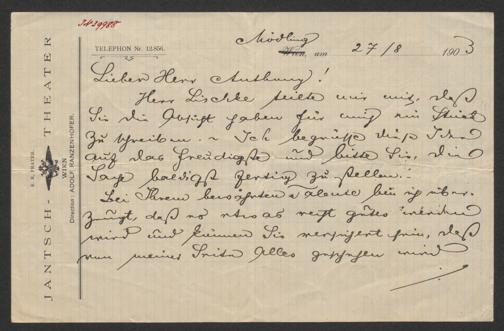 JN 39988
TELEPHON Nr. 12.856.
Mödling
Wien, am 27/8 1903
Lieber Herr Anthony!
Herr Lischke teilte mir mit, daß
Sie die Absicht haben für mich ein Stück
zu schreiben. - Ich begrüße diese Idee
auf das freudigste und bitte Sie, die
Sache baldigst fertig zu stellen.
Bei Ihrem bewährten Talente bin ich über-
zeugt, daß es etwas recht gutes werden
wird und können Sie versichert sein, daß
von meiner Seite Alles geschehen wird
K. K. PRATER.
JANTSCH-THEATER
WIEN
Direction: ADOLF RANZENHOFER.